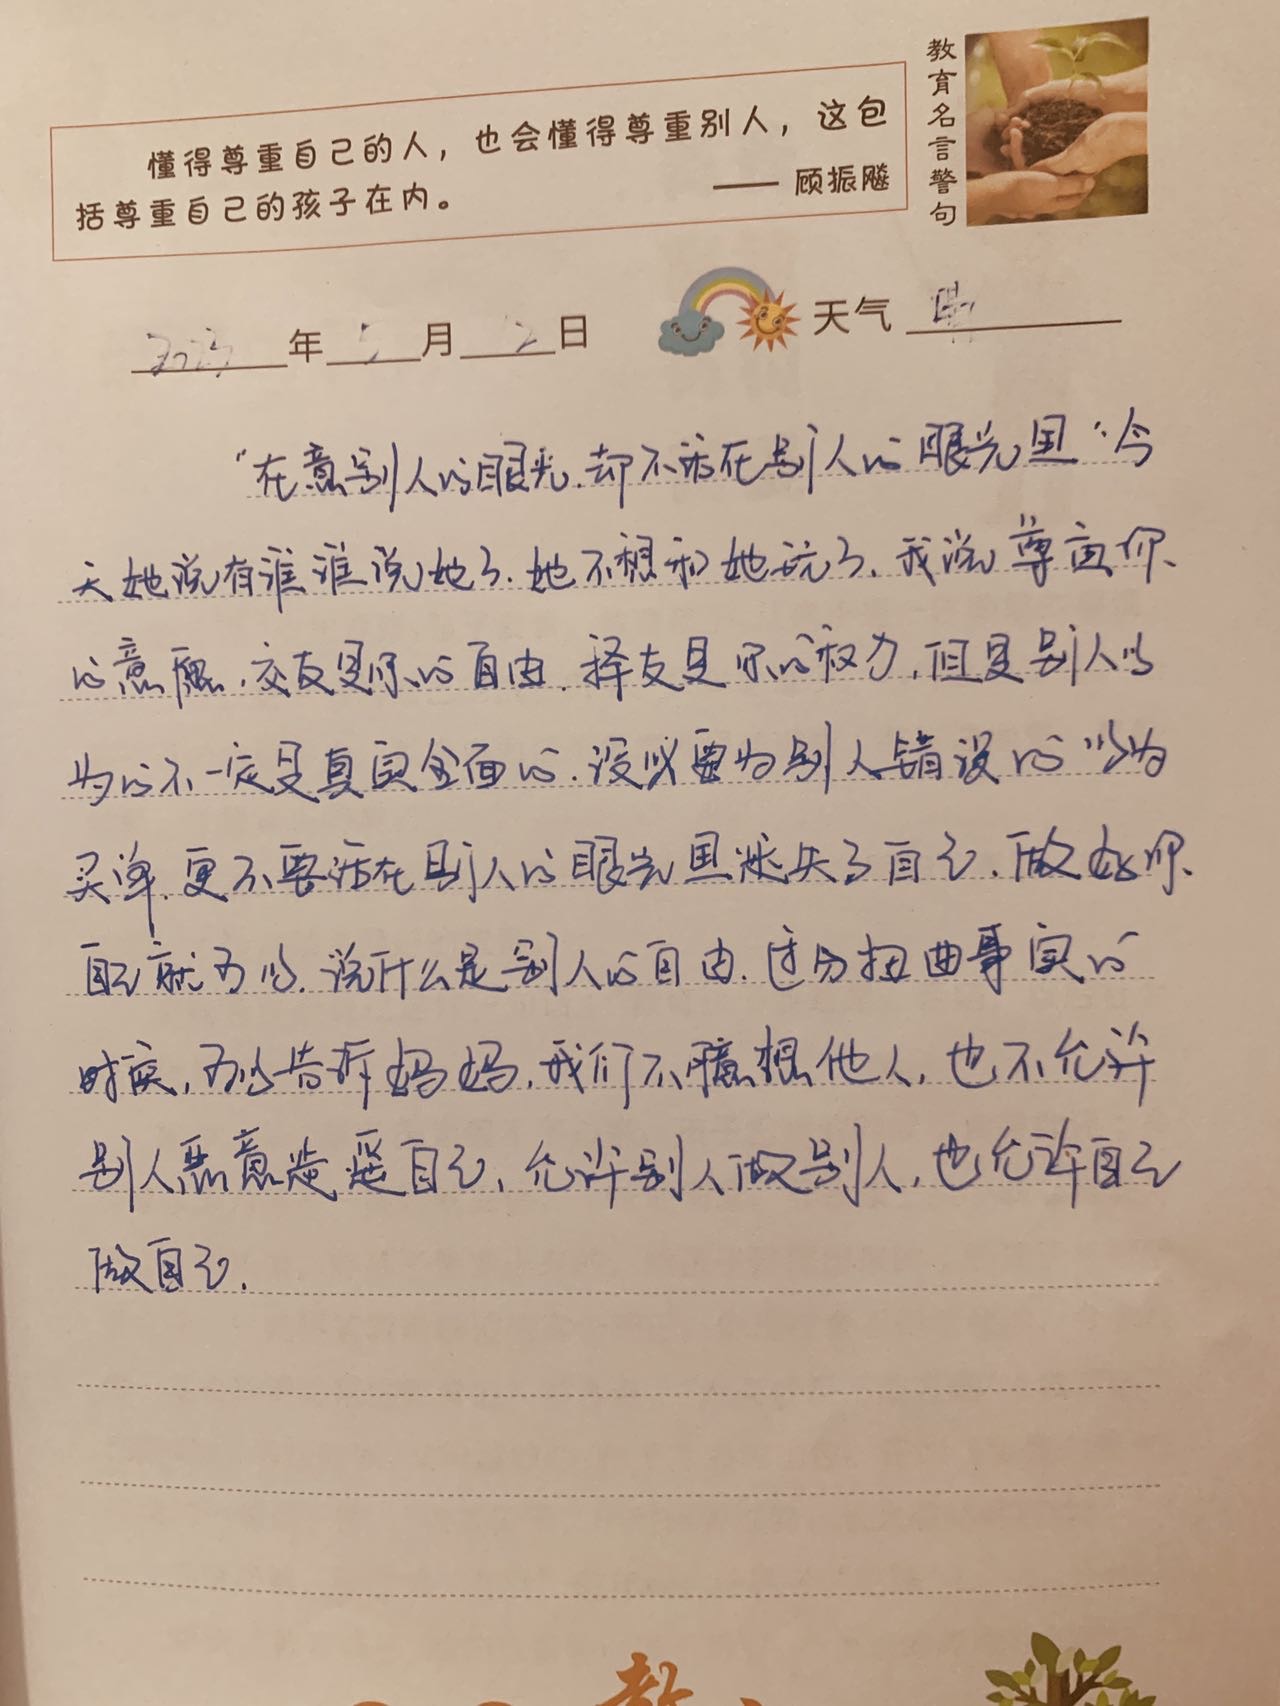 教育名言警句
懂得尊重自己的人，也会懂得尊重别人，这包
括尊重自己的孩子在内。 —— 顾振飚
2023年5月2日 天气
“在意别人的眼光.却不活在别人的眼光里”今
天她说有谁谁说她了.她不想和她玩了.我说尊重你
的意愿.交友是你的自由.择友是你的权力.但是别人以
为的不一定是真实全面的.没必要为别人错误的以为
买单.更不要活在别人的眼光里迷失了自己.做好你
自己就可以.说什么是别人的自由.过分扭曲事实的
时候,可以告诉妈妈,我们不臆想他人,也不允许
别人恶意造谣自己,允许别人做别人,也允许自己
做自己.